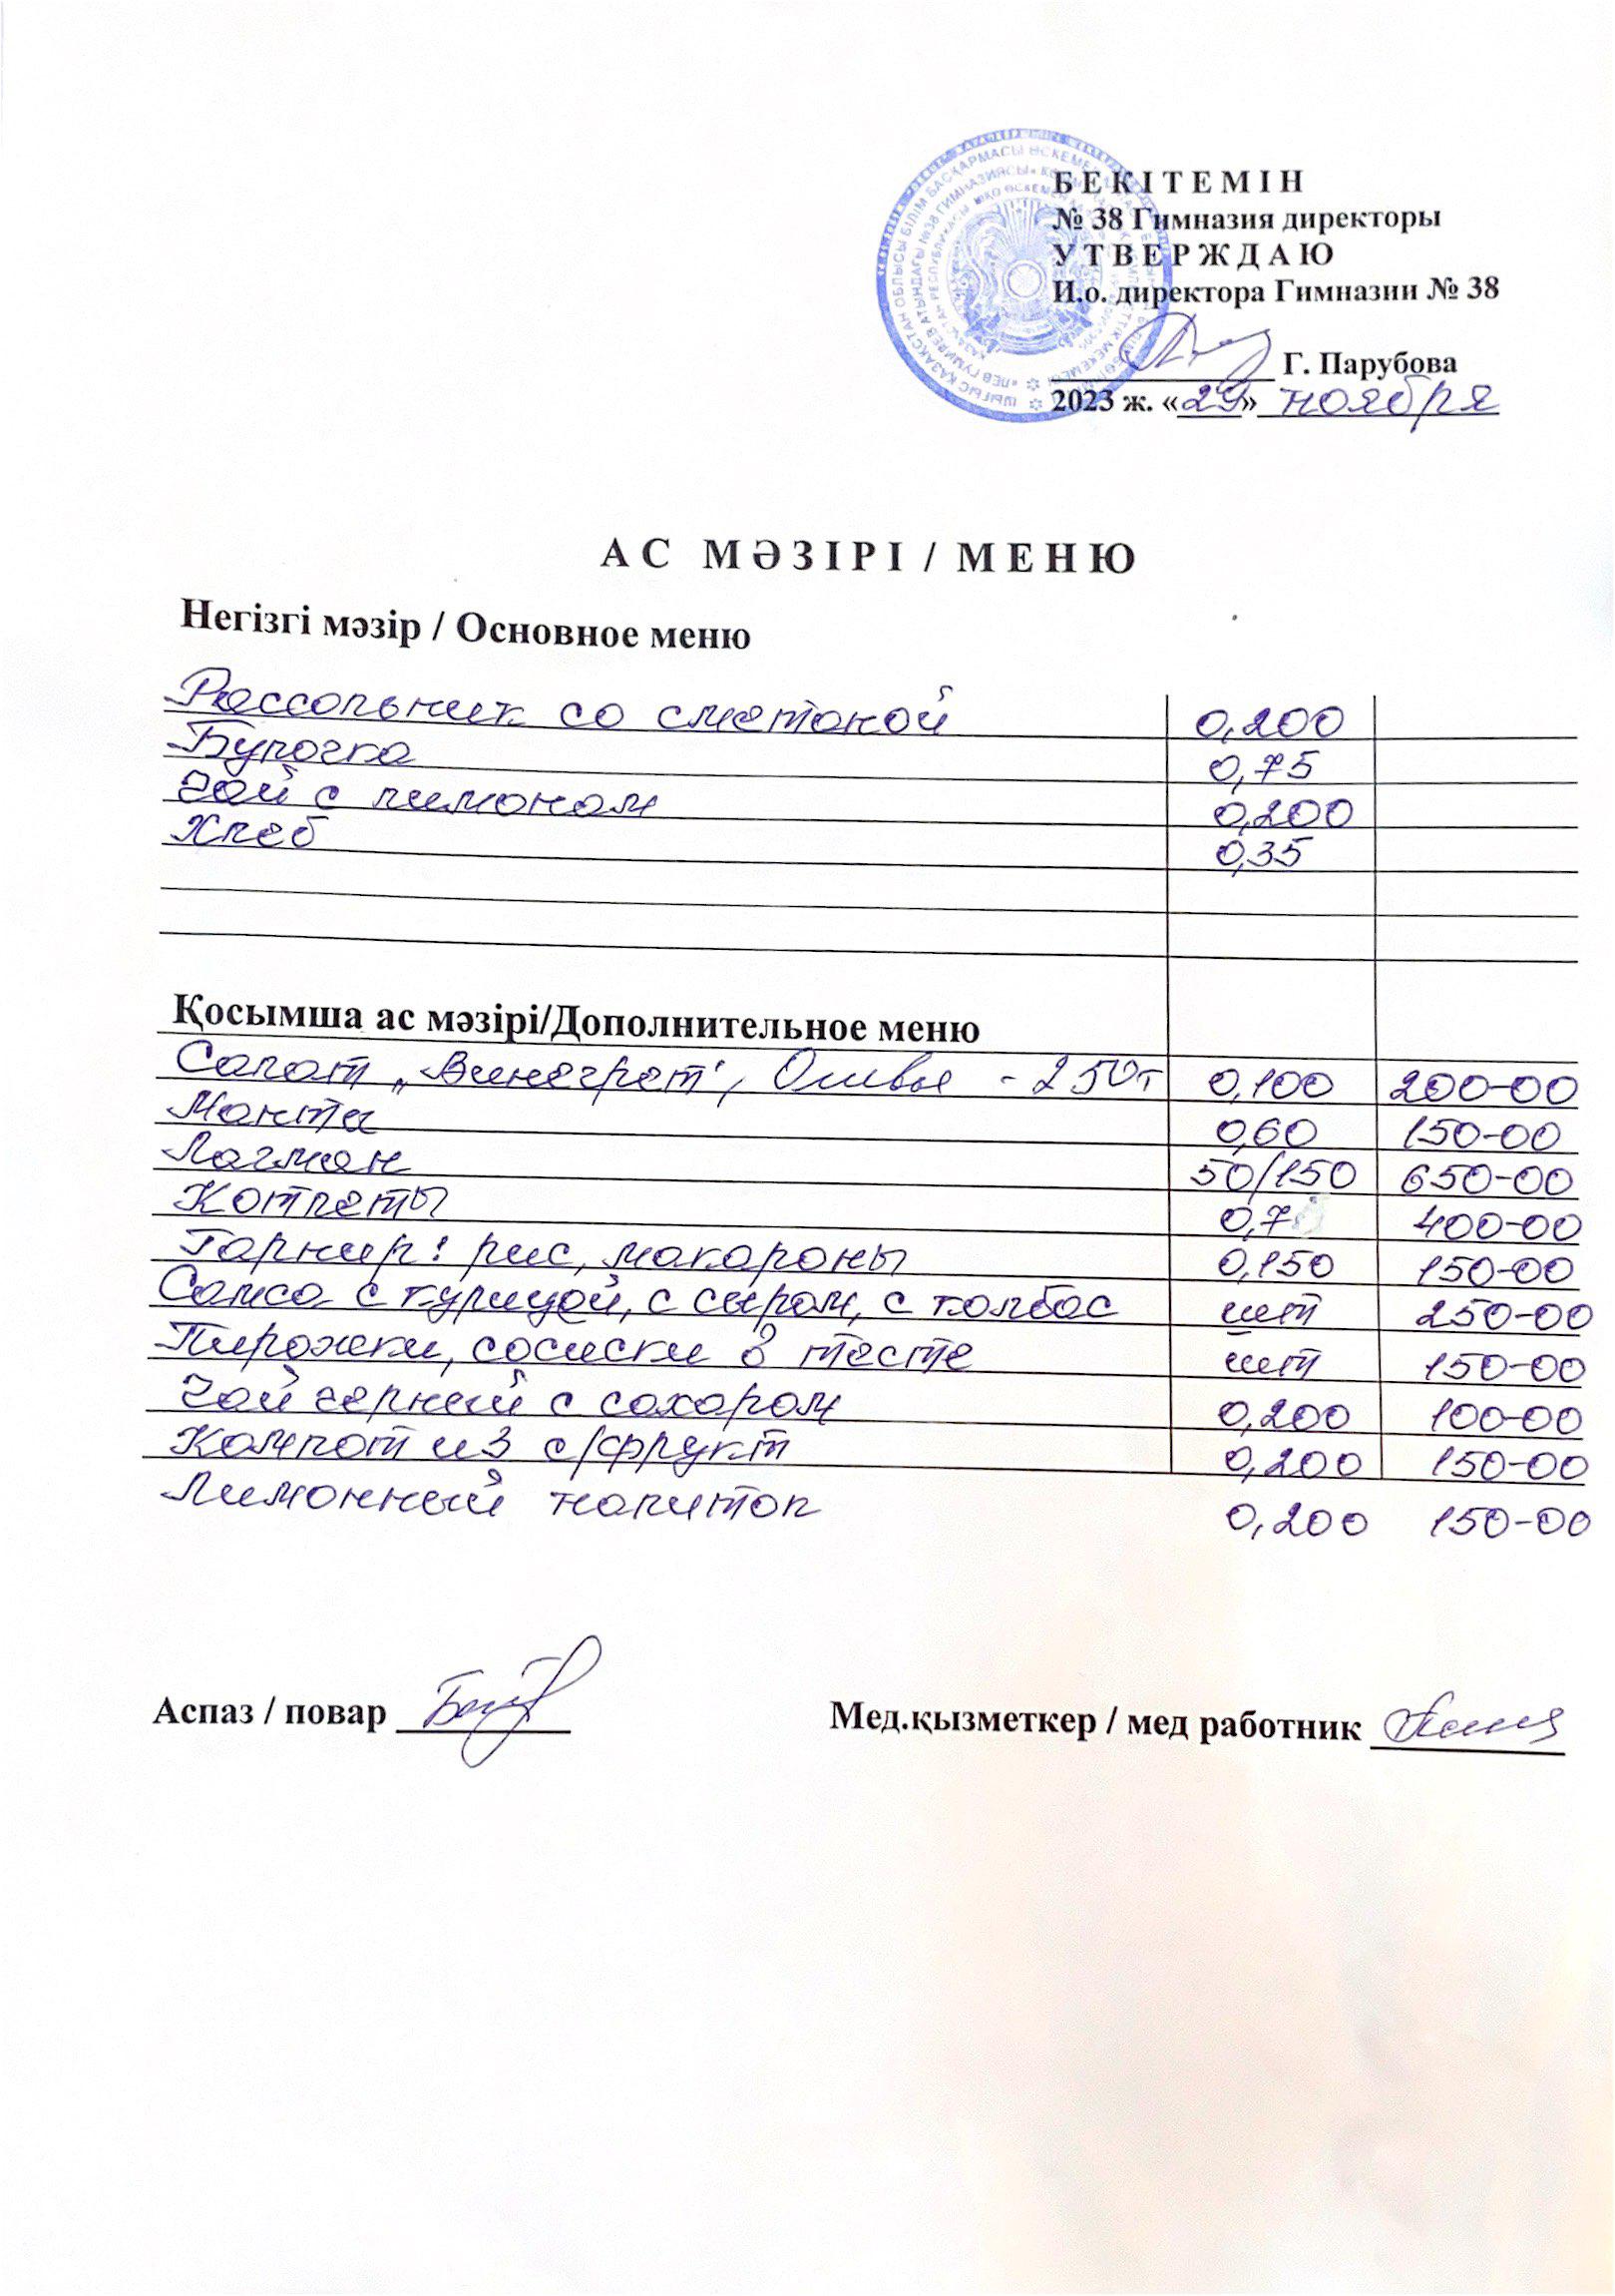 БЕКІТЕМІН
№ 38 Гимназия директоры
УТВЕРЖДАЮ
И.о. директора Гимназии № 38
Г. Парубова
2023 ж. «29» ноября
АС МӘЗІРІ / МЕНЮ
Негізгі мәзір / Основное меню
Рассольник со сметаной 0,200
Булочка 0,75
Чай с лимоном 0,200
Хлеб 0,35
Қосымша ас мәзірі/Дополнительное меню
Салат „Винегрет", Оливье - 250т 0,100 200-00
Манты 0,60 150-00
Лагман 50/150 650-00
Котлеты 0,7 400-00
Гарнир: рис, макароны 0,150 150-00
Самса с курицей, с сыром, с колбас шт 250-00
Пирожки, сосиски в тесте шт 150-00
Чай черный с сахаром 0,200 100-00
Компот из с/фрукт 0,200 150-00
Лимонный напиток 0,200 150-00
Аспаз / повар
Мед.қызметкер / мед работник